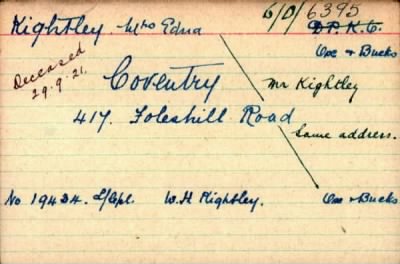 Kightley. Mrs Edna
6/O/6395
D.P.K.C.
Oxe & Bucks
Deceased
29.9.21.
Coventry
Mr Kightley
417. Foleshill Road
Same address.
No 19424. L/Cpl. W.H Kightley. Oxe & Bucks